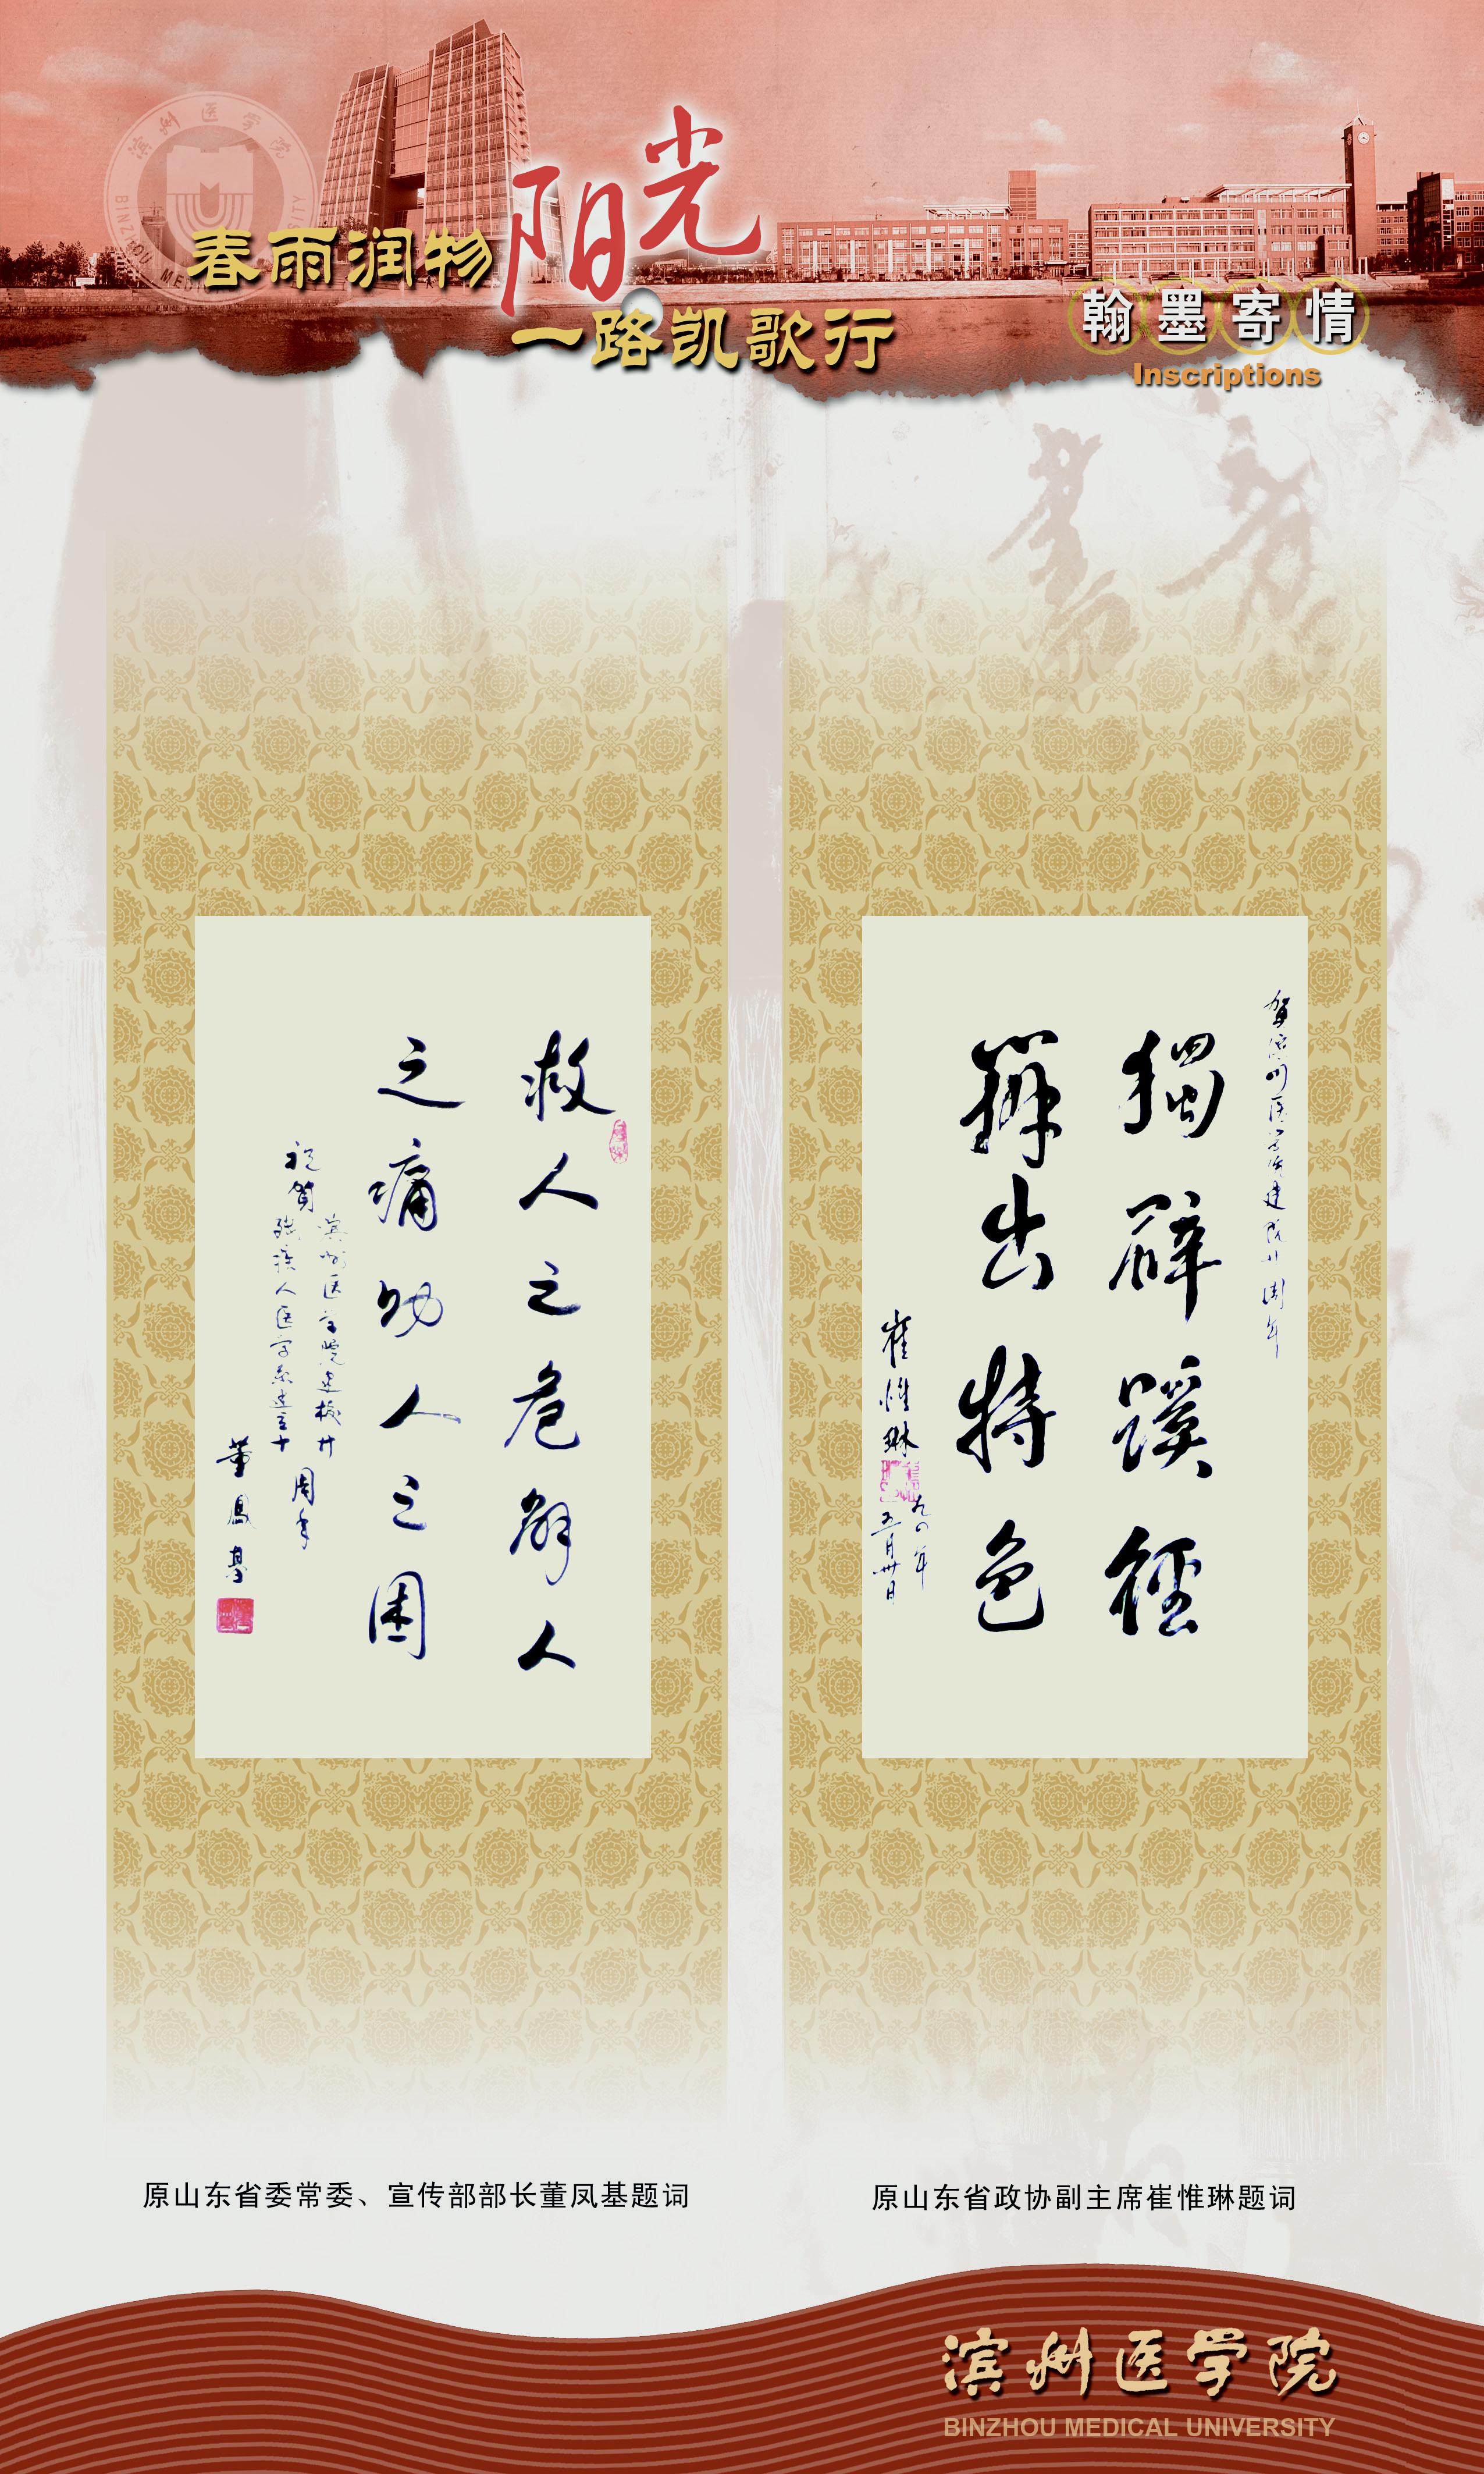 滨州医学院
春雨润物
阳光
一路凯歌行
翰墨寄情
Inscriptions
救人之危解人
之痛助人之困
祝贺
滨州医学院建校廿
残疾人医学系建立十
周年
董凤基
贺滨州医学院建院廿周年
獨辟蹊徑
辦出特色
崔惟琳
九四年
五月卅日
原山东省委常委、宣传部部长董凤基题词
原山东省政协副主席崔惟琳题词
滨州医学院
BINZHOU MEDICAL UNIVERSITY